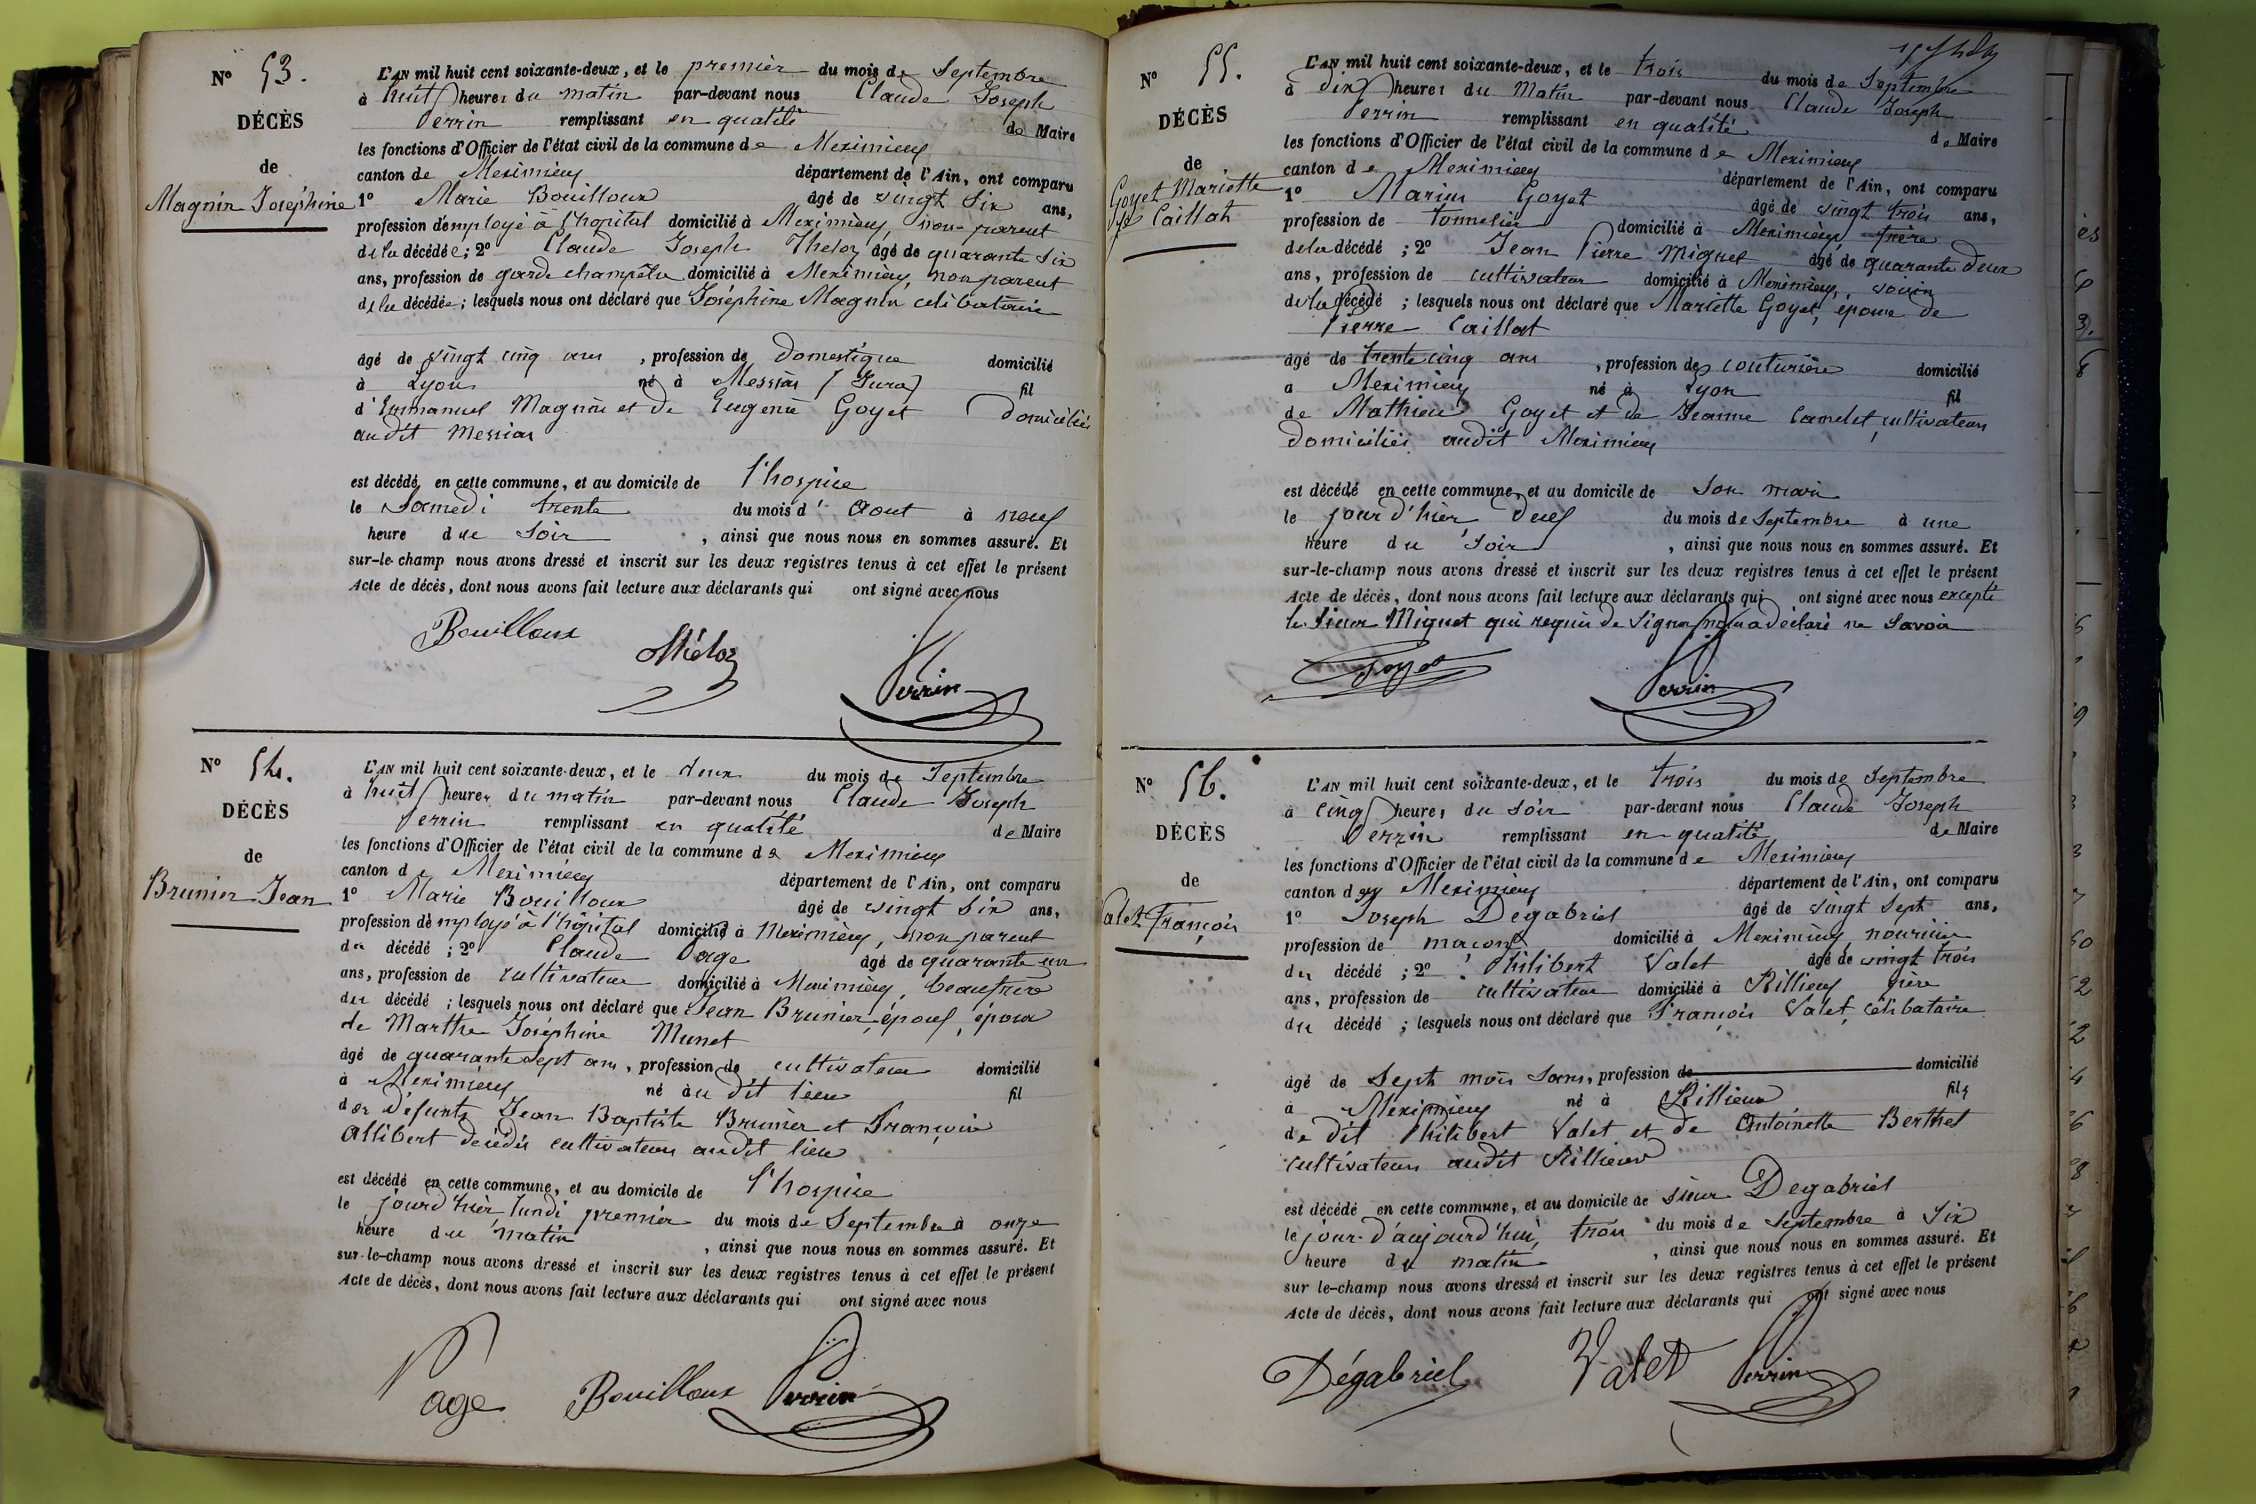 N° 53.
DÉCÈS
de
Magnin Joséphine
L'AN mil huit cent soixante-deux, et le premier du mois de Septembre
à huit heures du matin par-devant nous Claude Joseph
Perrin remplissant en qualité de Maire
les fonctions d'Officier de l'état civil de la commune de Meximieux
canton de Meximieux département de l'Ain, ont comparu
1° Marie Bouilloux âgé de vingt six ans,
profession d'employé à l'hopital domicilié à Meximieux, non parent
de la décédée; 2° Claude Joseph Theloz âgé de quarante six
ans, profession de garde champêtre domicilié à Meximieux, non parent
de la décédée; lesquels nous ont déclaré que Joséphine Magnin célibataire
âgé de vingt cinq ans, profession de domestique domicilié
à Lyon né à Messia (Jura) fil
d'Emmanuel Magnin et de Eugenie Goyet domiciliés
audit Messia
est décédé en cette commune, et au domicile de l'hospice
le Samedi trente du mois d'Aout à neuf
heure du Soir, ainsi que nous nous en sommes assuré. Et
sur-le-champ nous avons dressé et inscrit sur les deux registres tenus à cet effet le présent
Acte de décès, dont nous avons fait lecture aux déclarants qui ont signé avec nous
Bouilloux Théloz Perrin
N° 54.
DÉCÈS
de
Brunier Jean
L'AN mil huit cent soixante-deux, et le deux du mois de Septembre
à huit heures du matin par-devant nous Claude Joseph
Perrin remplissant en qualité de Maire
les fonctions d'Officier de l'état civil de la commune de Meximieux
canton de Meximieux département de l'Ain, ont comparu
1° Marie Bouilloux âgé de vingt six ans,
profession d'employé à l'hôpital domicilié à Meximieux, non parent
du décédé; 2° Claude Page âgé de quarante un
ans, profession de cultivateur domicilié à Meximieux, beaufrère
du décédé; lesquels nous ont déclaré que Jean Brunier, époux, époux
de Marthe Joséphine Munet
âgé de quarante sept ans, profession de cultivateur domicilié
à Meximieux né au dit lieu fil
des défunts Jean Baptiste Brunier et Françoise
Allibert décédés cultivateurs audit lieu
est décédé en cette commune, et au domicile de l'hospice
le jourd'hier lundi premier du mois de Septembre à onze
heure du matin, ainsi que nous nous en sommes assuré. Et
sur-le-champ nous avons dressé et inscrit sur les deux registres tenus à cet effet le présent
Acte de décès, dont nous avons fait lecture aux déclarants qui ont signé avec nous
Page Bouilloux Perrin
N° 55.
DÉCÈS
de
Goyet Mariette
fe Caillat
L'AN mil huit cent soixante-deux, et le trois du mois de Septembre
à dix heures du Matin par-devant nous Claude Joseph
Perrin remplissant en qualité de Maire
les fonctions d'Officier de l'état civil de la commune de Meximieux
canton de Meximieux département de l'Ain, ont comparu
1° Marius Goyet âgé de vingt trois ans,
profession de tonnelier domicilié à Meximieux frère
de la décédé; 2° Jean Pierre Miguet âgé de quarante deux
ans, profession de cultivateur domicilié à Meximieux, voisin
de la décédé; lesquels nous ont déclaré que Mariette Goyet, épouse de
Pierre Caillat
âgé de trente cinq ans, profession de couturière domicilié
à Meximieux né à Lyon fil
de Mathieu Goyet et de Jeanne Camelet, cultivateurs
domiciliés audit Meximieux
est décédé en cette commune, et au domicile de son mari
le jour d'hier deux du mois de Septembre à une
heure du Soir, ainsi que nous nous en sommes assuré. Et
sur-le-champ nous avons dressé et inscrit sur les deux registres tenus à cet effet le présent
Acte de décès, dont nous avons fait lecture aux déclarants qui ont signé avec nous excepté
le Sieur Miguet qui requis de Signer nous a déclaré ne Savoir
Goyet Perrin
N° 56.
DÉCÈS
de
Valet François
L'AN mil huit cent soixante-deux, et le trois du mois de Septembre
à cinq heures du Soir par-devant nous Claude Joseph
Perrin remplissant en qualité de Maire
les fonctions d'Officier de l'état civil de la commune de Meximieux
canton de Meximieux département de l'Ain, ont comparu
1° Joseph Degabriel âgé de vingt sept ans,
profession de maçon domicilié à Meximieux, nouricier
du décédé; 2° Philibert Valet âgé de vingt trois
ans, profession de cultivateur domicilié à Rillieux, père
du décédé; lesquels nous ont déclaré que François Valet, célibataire
âgé de Sept mois Sans, profession de domicilié
à Meximieux né à Rillieux fils
de dit Philibert Valet et de Antoinette Berthet
cultivateurs audit Rillieux
est décédé en cette commune, et au domicile de Sieur Degabriel
le jour d'aujourd'hui, trois du mois de Septembre à Six
heure du matin, ainsi que nous nous en sommes assuré. Et
sur le-champ nous avons dressé et inscrit sur les deux registres tenus à cet effet le présent
Acte de décès, dont nous avons fait lecture aux déclarants qui ont signé avec nous
Dégabriel Valet Perrin